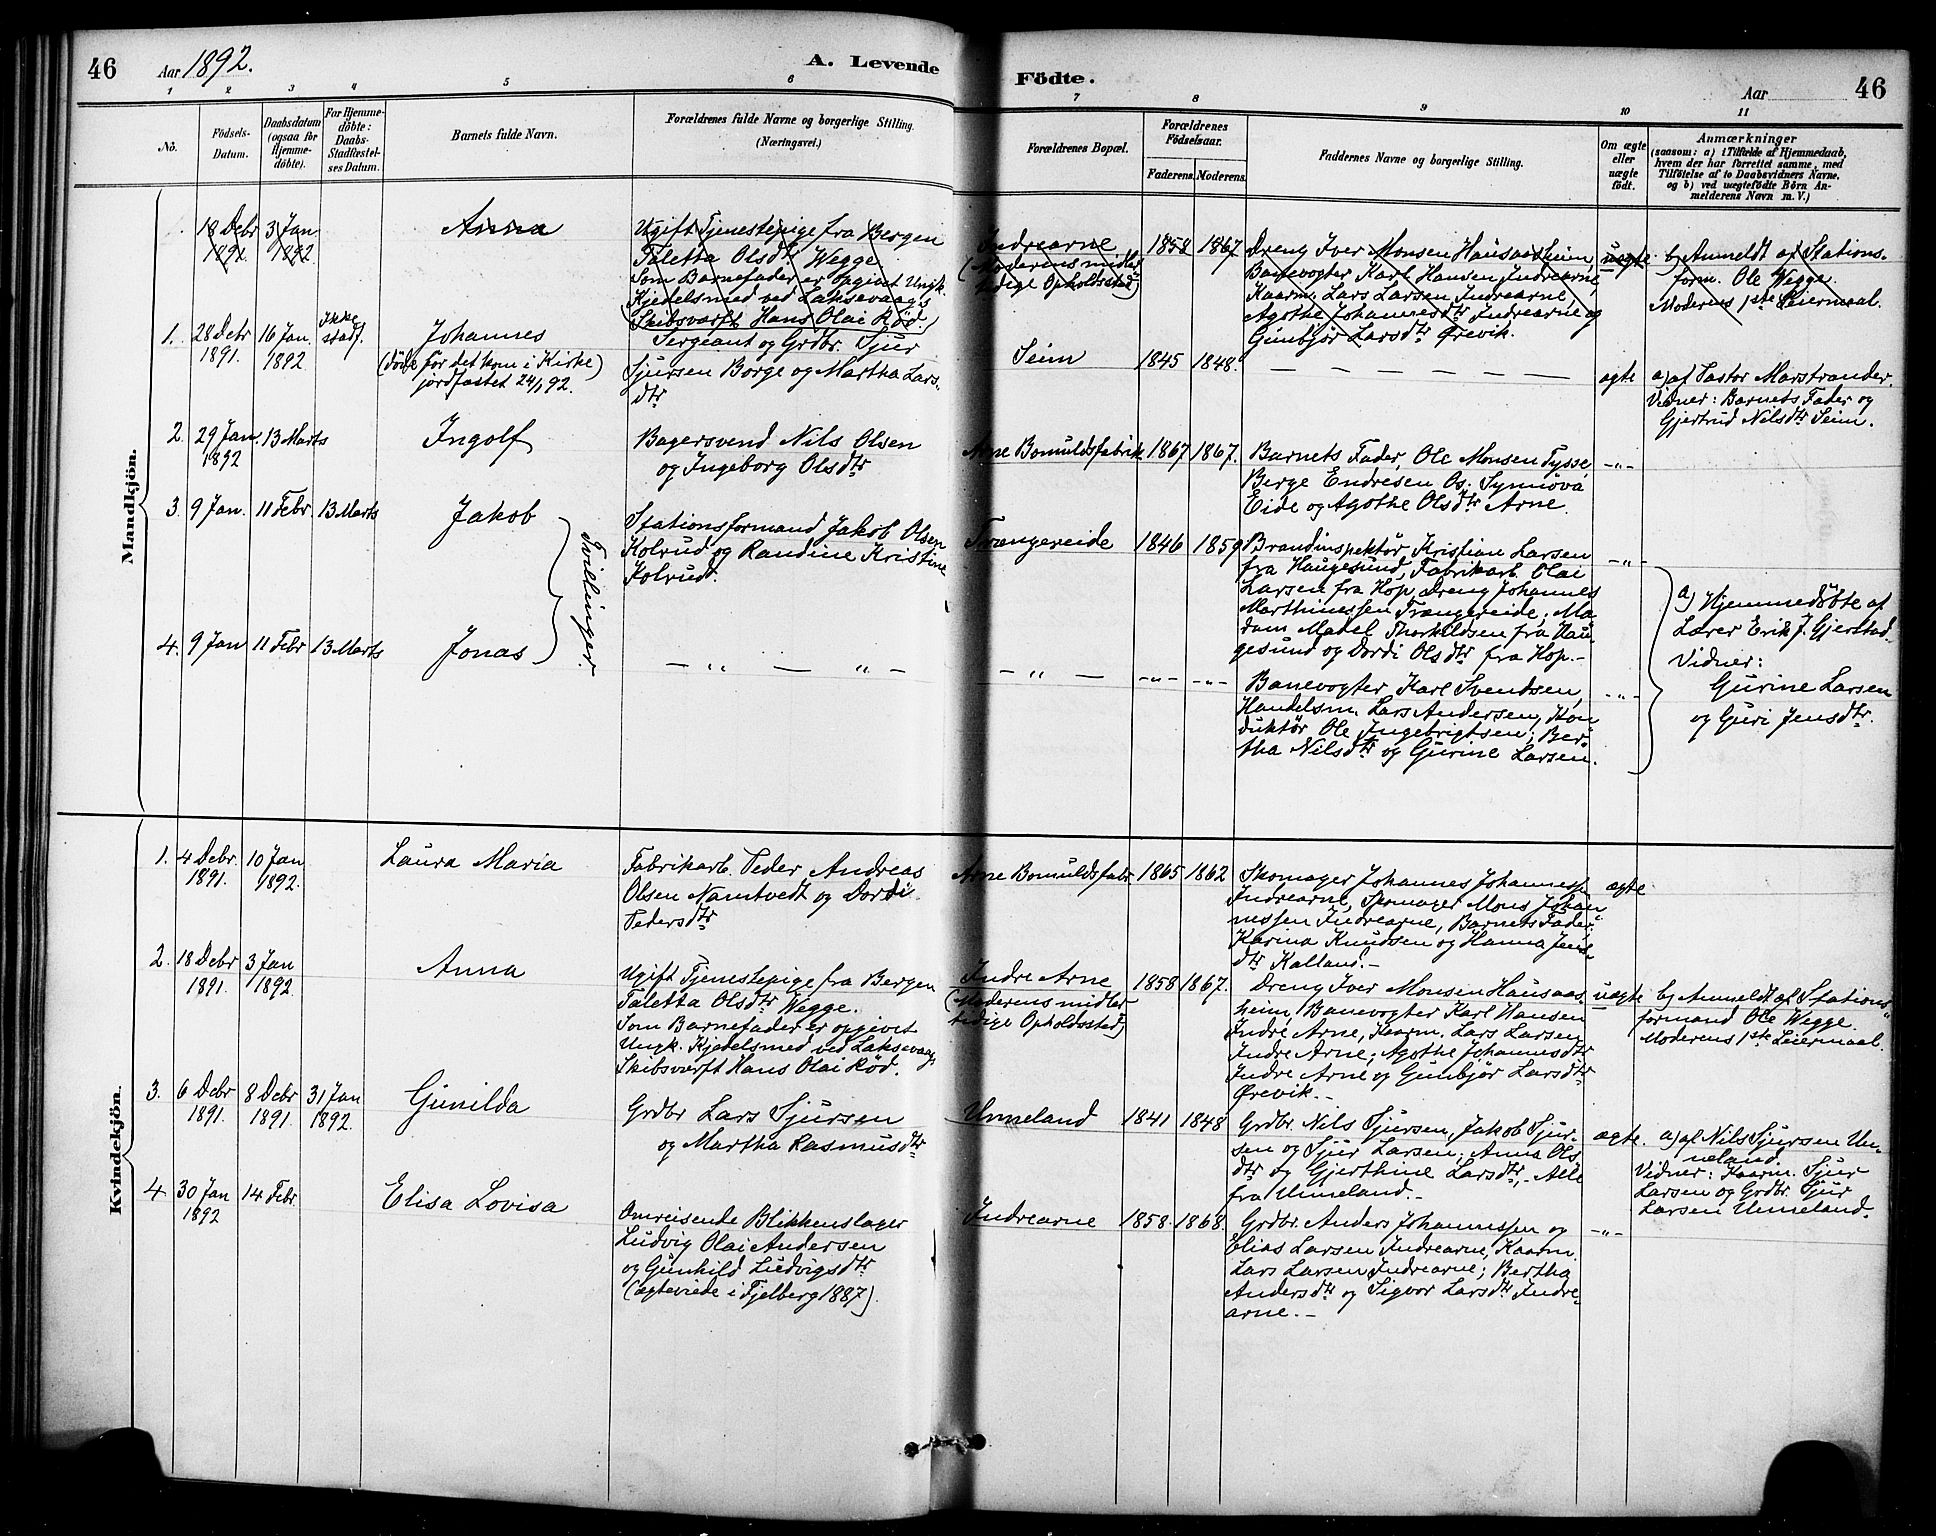 46 Aar 1892. A. Levende Födte. Aar 46
1 2 3 4 5 6 7 8 9 10 11
No.
Födsels-Datum.
Daabsdatum (ogsaa for Hjemmedöbte).
For Hjemmedöbte: Daabs-Stadfæstelses Datum.
Barnets fulde Navn.
Forældrenes fulde Navne og borgerlige Stilling.
(Næringsvei.)
Forældrenes Bopæl.
Forældrenes Födselsaar.
Faderens. Moderens.
Faddernes Navne og borgerlige Stilling.
Om ægte eller uægte födt.
Anmærkninger
(saasom: a) i Tilfælde af Hjemmedaab,
hvem der har forrettet samme, med
Tilföielse af to Daabsvidners Navne,
og b) ved uægtefödte Börn An-
melderens Navn m. V.)
Mandkjön.
18 Debr 1891 3 Jan 1892
Anna
Ugift Tjenestepige fra Bergen
Taletta Olsdtr Wegge
Som Barnefader er opgivet Ungk.
Kjedelsmed ved Laksevaags
Skibsværft Hans Olai Röd.
Indrearne
(Moderens midler
tidige Opholdssted)
1858 1867
Dreng Iver Monsen Hausaasheim,
Banevogter Karl Hansen Indrearne,
Kaarm. Lars Larsen Indrearne,
Agothe Johannesdtr Indrearne og
Gunbjör Larsdtr Ørevik.
uægte
b) Anmeldt af Stations-
form. Ole Wegge.
Moderens 1ste Leiermaal.
1. 28 Debr 1891. 16 Jan. 1892 Ikke stadf.
Johannes
(döde för det kom i Kirke)
jordfæstet 24/1 92.
Sergeant og Grdbr. Sjur
Sjursen Borge og Martha Lars-
dtr
Seim 1845 1848.
— — — — — — —
ægte
a) af Pastor Marstrander.
Vidner: Barnets Fader og
Gjertrud Nilsdtr Seim.
2. 29 Jan. 1892 13 Marts
Ingolf
Bagersvend Nils Olsen
og Ingeborg Olsdtr
Arne Bomuldsfabrik 1867 1867.
Barnets Fader, Ole Monsen Tysse,
Berge Endresen Os; Synnöva
Eide og Agothe Olsdtr Arne.
-"-
3. 9 Jan. 11 Febr. 13 Marts
Jakob
Tvillinger.
Stationsformand Jakob Olsen
Kolrud og Randine Kristine
Kolrud.
Trængereide 1846 1859
Brandinspektör Kristian Larsen
fra Haugesund, Fabrikarb. Olai
Larsen fra Hop, Dreng Johannes
Marthinessen Trængereide; Ma-
dam Madel Thorkildsen fra Hau-
gesund og Dordi Olsdtr fra Hop.-
-"-
a) Hjemmedöbte af
Lærer Erik J. Gjerstad.
Vidner:
Gurine Larsen
og Guri Jensdtr.
4. 9 Jan 11 Febr 13 Marts
Jonas
— " — " —
— " — -"- -"-
Banevogter Karl Svendsen,
Handelsm. Lars Andersen, Kon-
duktör Ole Ingebrigtsen; Ber-
tha Nilsdtr og Gurine Larsen.
-"-
Kvindekjön.
1. 4 Debr. 1891. 10 Jan 1892.
Laura Maria
Fabrikarb. Peder Andreas
Olsen Namtvedt og Dordi
Pedersdtr
Arne Bomuldsfabr. 1865 1862
Skomager Johannes Johannessen
Indrearne, Skomager Mons Johan-
nessen Indrearne, Barnets Fader;
Karina Knudsen og Hanna Jens-
dtr Kalland.-
ægte
2. 18 Debr 1891. 3 Jan 1892.
Anna
Ugift Tjenestepige fra Bergen
Taletta Olsdtr Wegge.
Som Barnefader er opgivet
Ungk. Kjedelsmed ved Laksevaags
Skibsværft Hans Olai Röd.
Indre Arne
(Moderens midler
tidige Opholdssted)
1858 1867.
Dreng Iver Monsen Hausaas-
heim, Banevogter Karl Hansen
Indre Arne, Kaarm. Lars Larsen
Indre Arne; Agothe Johannesdtr
Indre Arne og Gunbjör Larsdtr
Ørevik.-
uægte
b) Anmeldt af Stations-
formand Ole Wegge.
Moderens 1ste Leiermaal.
3. 6 Debr 1891. 8 Debr 1891. 31 Jan 1892.
Gunilda
Grdbr Lars Sjursen
og Martha Rasmusdtr
Unneland 1841 1848
Grdbr. Nils Sjursen, Jakob Sjur-
sen og Sjur Larsen; Anna Ols-
dtr og Gjerthine Larsdtr,- Alle
fra Unneland.-
ægte.
a) af Nils Sjursen Un-
neland.
Vidner: Kaarm. Sjur
Larsen og Grdbr. Sjur
Larsen Unneland.
4. 30 Jan 1892 14 Febr.
Elisa Lovisa
Omreisende Blikkenslager
Ludvig Olai Andersen
og Gunhild Ludvigsdtr
(ægteviede i Fjelberg 1887).
Indrearne 1858. 1868.
Grdbr. Anders Johannessen og
Elias Larsen Indrearne, Kaarm.
Lars Larsen Indrearne; Bertha
Andersdtr og Sigvor Larsdtr Indre-
arne.-
-"-